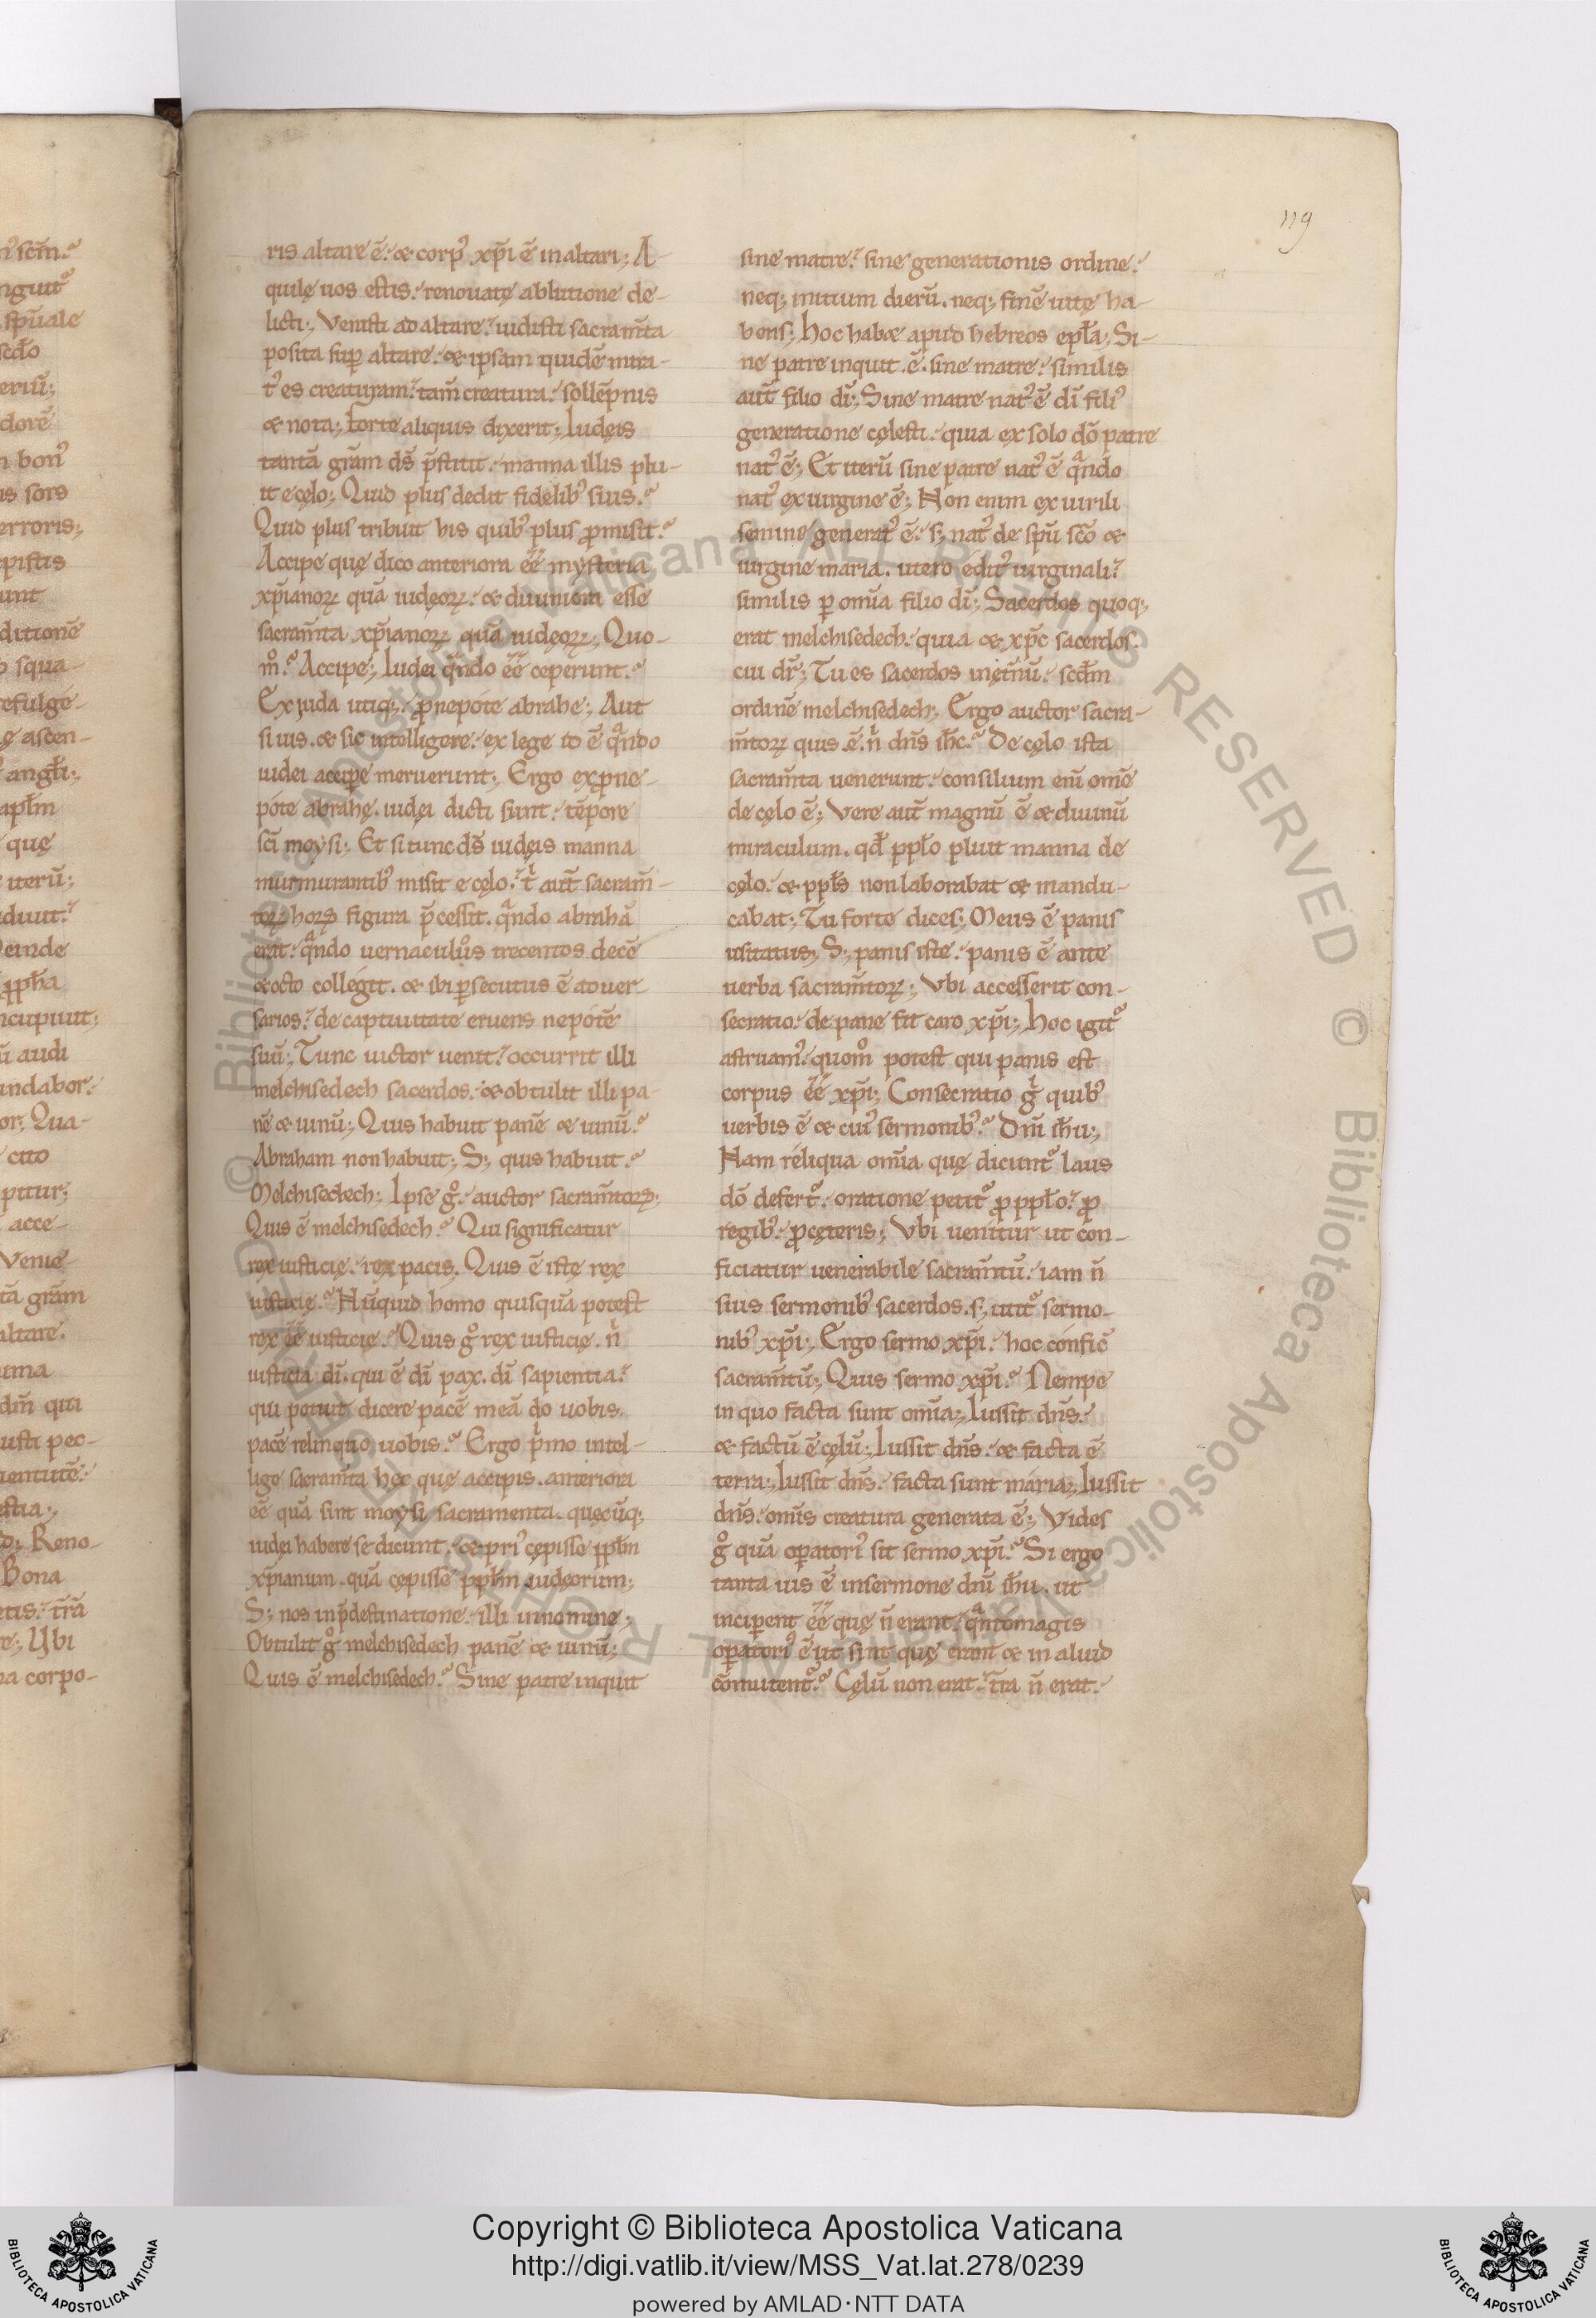 119
ris altare ē. & corp᾿ xp̄i ē in altari; A-
quilę uos estis. renouatę ablutione de-
licti; Venisti ad altare. uidisti sacram̄ta
posita sup̱ altare. & ipsam quidē mira-
t᾿ es creaturam. tam̄ creatura. sollēpnis
& nota; Forte aliquis dixerit; Iudęis
tantā grām ds̄ p̄stitit. manna illis plu-
it e cęlo; Quid plus dedit fidelib᾿ suis.
Quid plus tribuit his quib᾿ plus ꝓmisit.
Accipe quę dico anteriora ēē mysteria
xp̄ianoꝝ quā iudęoꝝ. & diuiniora esse
sacram̄ta xp̄ianoꝝ quā iudęoꝝ; Quo-
m̊. Accipe; Iudei qͣndo ēē ceperunt.
Ex iuda utiq; ꝓnepote abrahe; Aut
si uis. & sic intelligere. ex lege id ē qͣndo
iudei accip̱e meruerunt; Ergo ex ꝓne-
pote abrahę. iudęi dicti sunt. tēpore
sc̄i moysi; Et si tunc ds̄ iudęis manna
murmurantib᾿ misit e cęlo. tͥ aut̄ sacram̄-
toꝝ hoꝝ figura p̄cessit. qͣndo abrahā
erat. qͣndo uernaculos trecentos decē
& octo collegit. & ibi ꝑsecutus ē aduer-
sarios. de captiuitate eruens nepotē
suū; Tunc uictor uenit. occurrit illi
melchisedech sacerdos. & obtulit illi pa-
nē & uinū; Quis habuit panē & uinū.
Abraham non habuit; S; quis habuit.
Melchisedech; Ipse g̊. auctor sacram̄toꝝ;
Quis ē melchisedech. Qui significatur
rex iusticię. rex pacis. Quis ē istę rex
iusticię. Nūquid homo quisquā potest
rex ēē iusticię. Quis g̊ rex iusticię. nͥ
iusticia dī. qui ē dī pax. dī sapientia.
qui potuit dicere pacē meā do uobis.
pacē relinquo uobis. Ergo pͥmo intel-
lige sacram̄ta hęc quę accipis. anteriora
eē quā sint moysi sacramenta. quęcūq;
iudęi habere se dicunt. & pri᾿ cępisse pp̄lm
xp̄ianum. quā cępisse pp̄lm iudęorum;
S; nos in p̄destinatione. illi in nomine;
Obtulit g̊ melchisedech panē & uinū;
Quis ē melchisedech. Sine patre inquit
sine matre. sine generationis ordine.
neq; initium dierū. neq; finē uitę ha-
bens; hoc habet apud hebreos ep̄la; Si-
ne patre inquit ē. sine matre. similis
aut̄ filio dī; Sine matre nat᾿ ē dī fili᾿
generatione cęlesti. quia ex solo dō patre
nat᾿ ē; Et iterū sine patre nat᾿ ē qͣndo
nat᾿ ex uirgine ē; Non enim ex uirili
semine generat᾿ ē. s; nat᾿ de sp̄u sc̄o &
uirgine maria. utero edit᾿ uirginali.
similis ꝑ om̄ia filio dī; Sacerdos quoq;
erat melchisedech. quia & xp̄c sacerdos.
cui dr̄; Tu es sacerdos in ęt̄nū. scd̄m
ordinē melchisedech; Ergo auctor sacra-
m̄toꝝ quis ē. nͥ dn̄s ih̄c. De cęlo ista
sacram̄ta uenerunt. consilium eni̅ omē
de cęlo ē; Vere aut̄ magnū ē & diuinū
miraculum. qd̄ pp̄lo pluit manna de
cęlo. & pp̄ls non laborabat & mandu-
cabat; Tu forte dices; Meus ē panis
usitatus; S; panis iste. panis ē ante
uerba sacram̄toꝝ; Vbi accesserit con-
secratio. de pane fit caro xp̄i; hoc igit᾿
astruam᾿. quom̊ potest qui panis est
corpus ēē xp̄i; Consecratio gͥ quib᾿
uerbis ē & cui᾿ sermonib᾿. Dn̄i ih̄u;
Nam reliqua om̄ia quę dicunt᾿ laus
dō defert᾿. oratione petit᾿ ꝓ pp̄lo. ꝓ
regib᾿. ꝓ cęteris; Vbi uenitur ut con-
ficiatur uenerabile sacram̄tū. iam n̄
suis sermonib᾿ sacerdos. s; utit᾿ sermo-
nib᾿ xp̄i; Ergo sermo xp̄i. hoc confic̄
sacram̄tū; Quis sermo xp̄i. Nempe
in quo facta sunt om̄ia; Iussit dn̄s.
& factū ē cęlū; Iussit dn̄s. & facta ē
terra; Iussit dn̄s. facta sunt maria; Iussit
dn̄s. om̄is creatura generata ē; Vides
g̊ quā oꝑatori᾿ sit sermo xp̄i. Si ergo
tanta uis ē in sermone dn̄i ih̄u. ut
incip̱ent ēē quę n̄ erant. qͣnto magis
oꝑatori᾿ ē ut sint quę erant & in aliud
cōmutent᾿. Cęlū non erat. t̄ra n̄ erat.
Copyright © Biblioteca Apostolica Vaticana
http://digi.vatlib.it/view/MSS_Vat.lat.278/0239
powered by AMLAD·NTT DATA